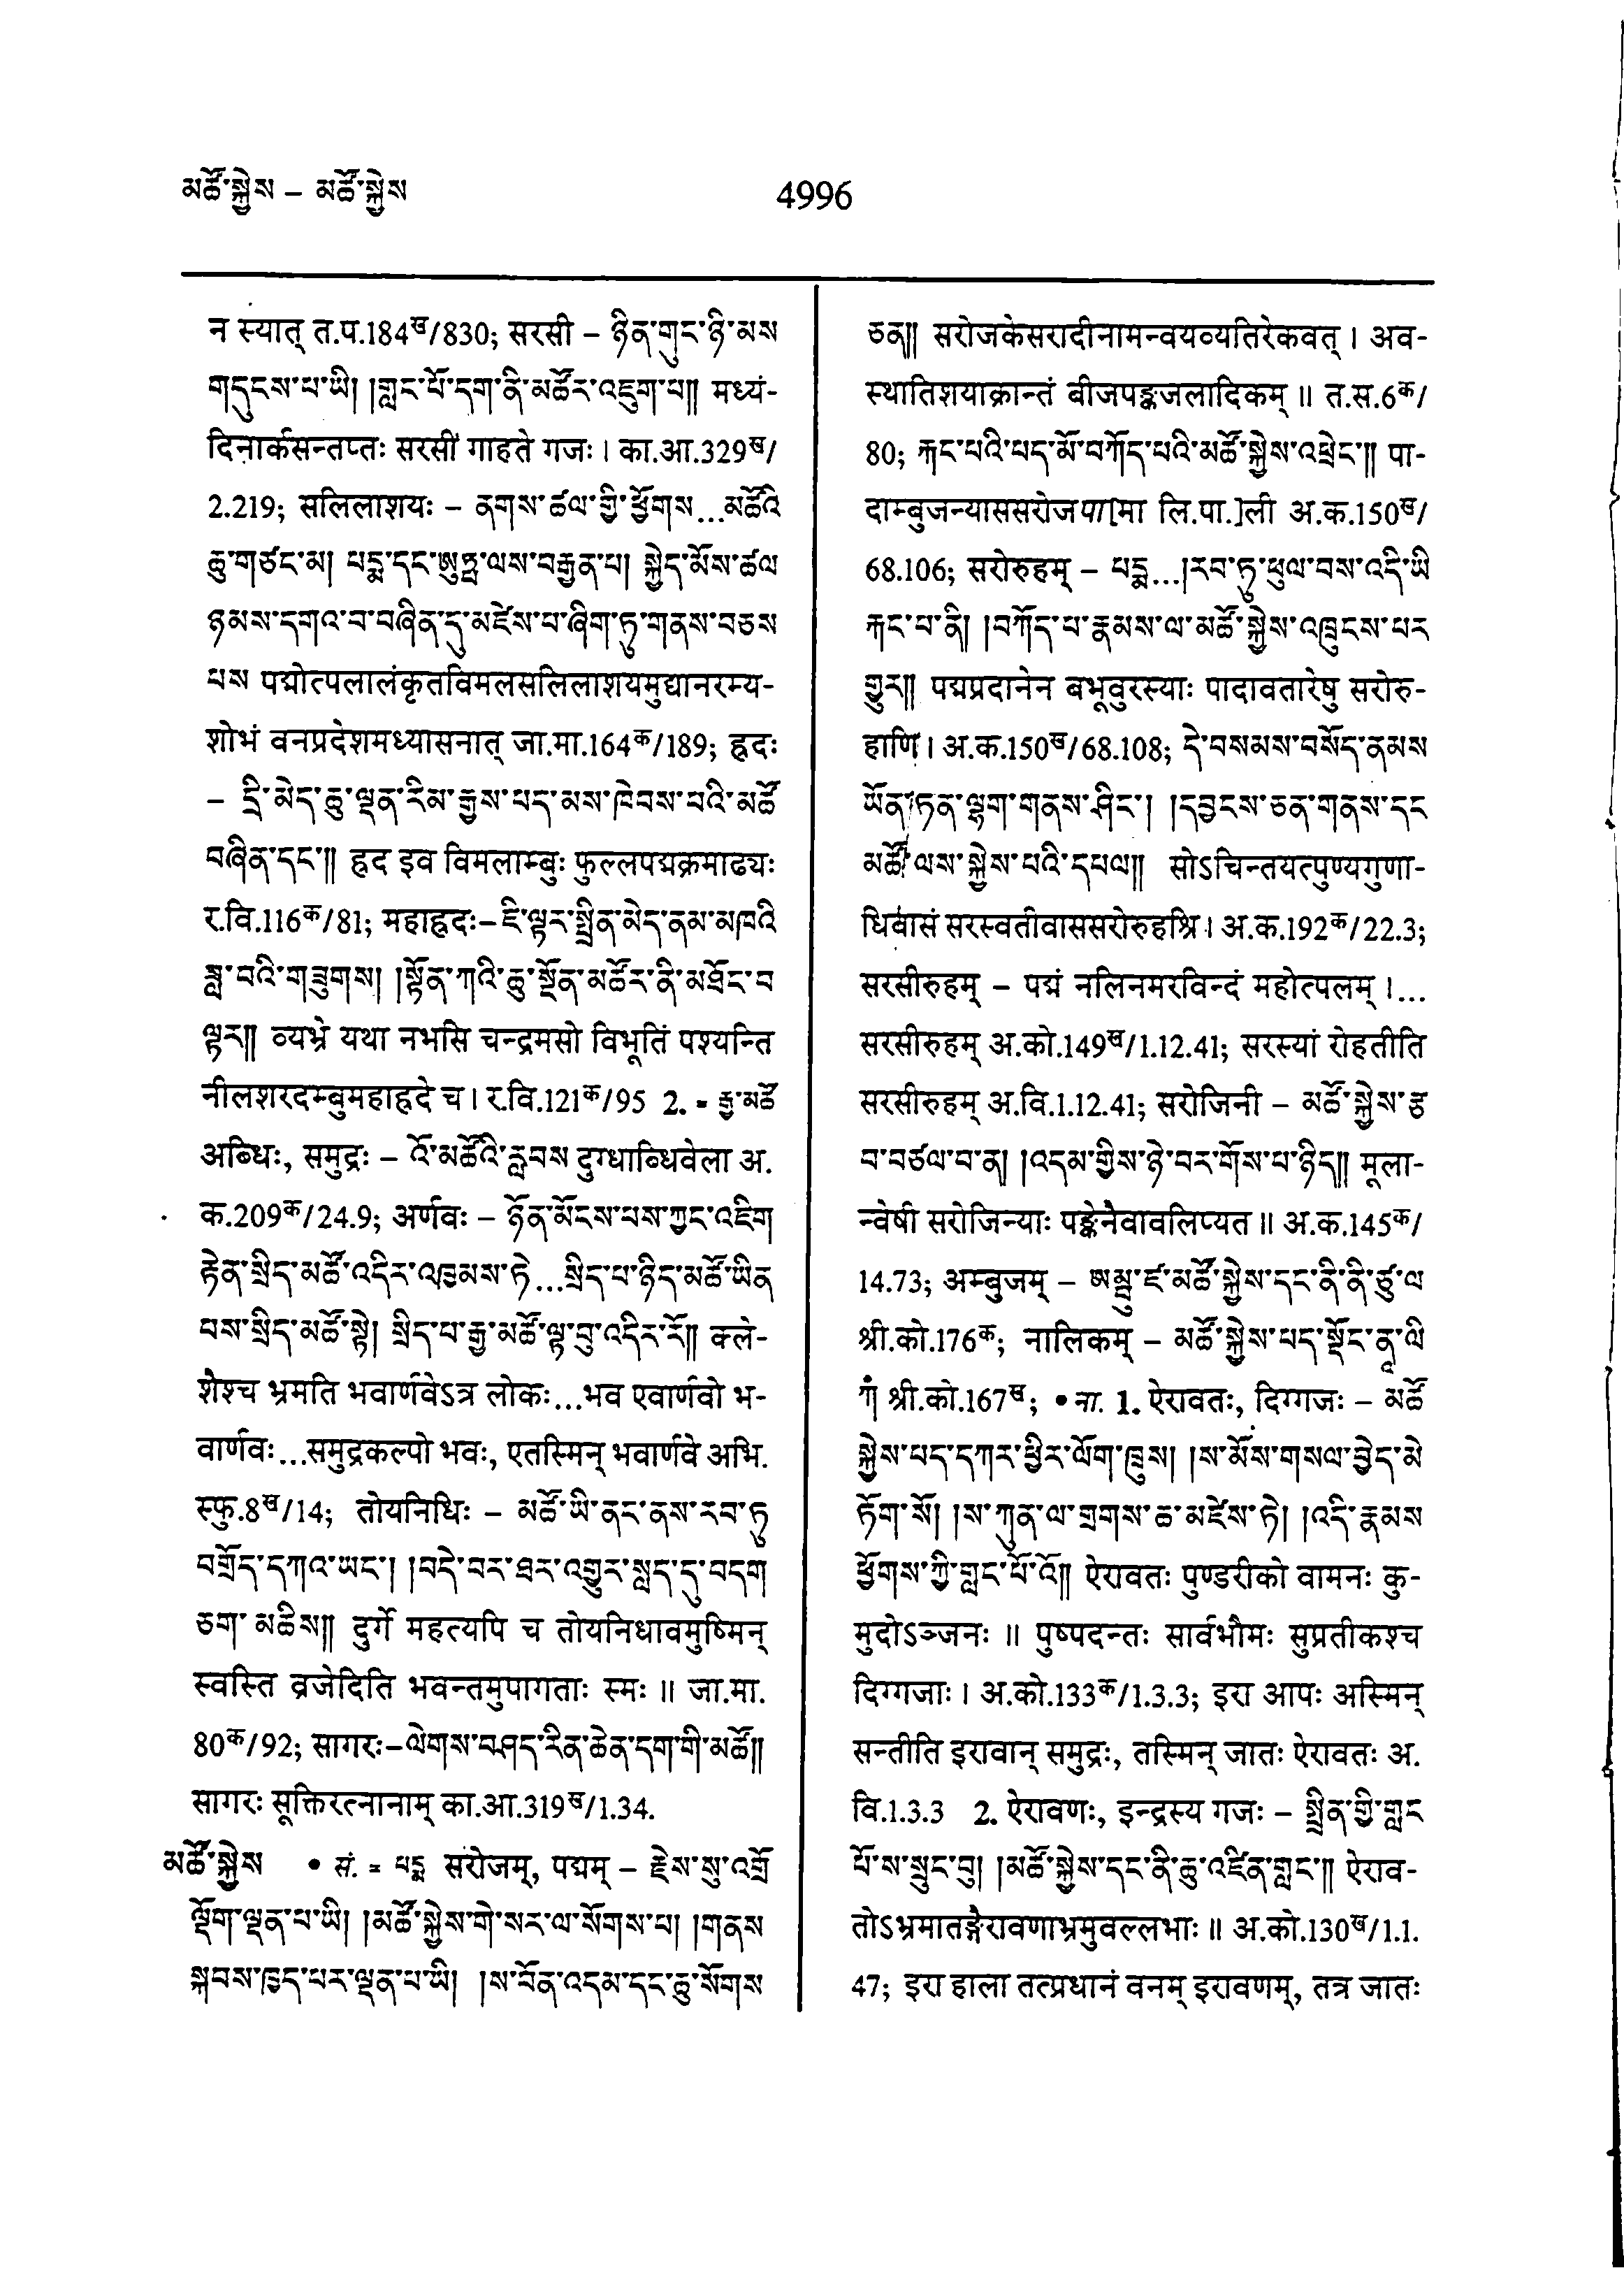 མཚོ་སྐྱེས – མཚོ་སྐྱེས
4996
न स्यात् त.प.184ख/830; सरसी – ཉིན་གུང་ཉི་མས
གདུངས་པ་ཡི། །གླང་པོ་དག་ནི་མཚོར་འཇུག་པ།། मध्यं-
दिनार्कसन्तप्तः सरसीं गाहते गजः। का.आ.329ख/
2.219; सलिलाशयः – ནགས་ཚལ་གྱི་ཕྱོགས...མཚོའི
ཆུ་གཙང་མ། པདྨ་དང་ཨུཏྤལ་ལས་བརྒྱན་པ། སྐྱེད་མོས་ཚལ
ཉམས་དགའ་བ་བཞིན་དུ་མཛེས་པ་ཞིག་ཏུ་གནས་བཅས
པས पद्मोत्पलालंकृतविमलसलिलाशयमुद्यानरम्य-
शोभं वनप्रदेशमध्यासनात् जा.मा.164क/189; ह्रदः
– དྲི་མེད་ཆུ་ལྡན་རིམ་རྒྱས་པད་མས་ཁེབས་པའི་མཚོ
བཞིན་དང་།། ह्रद इव विमलाम्बुः फुल्लपद्मक्रमाढ्यः
र.वि.116क/81; महाह्रदः–ཇི་ལྟར་སྤྲིན་མེད་ནམ་མཁའི
ཟླ་བའི་གཟུགས། །སྟོན་ཀའི་ཆུ་སྔོན་མཚོར་ནི་མཐོང་བ
ལྟར།། व्यभ्रे यथा नभसि चन्द्रमसो विभूतिं पश्यन्ति
नीलशरदम्बुमहाह्रदे च। र.वि.121क/95 2. = རྒྱ་མཚོ
अब्धिः, समुद्रः – འོ་མཚོའི་རླབས दुग्धाब्धिवेला अ.
क.209क/24.9; अर्णवः – ཉོན་མོངས་པས་ཀྱང་འཇིག
རྟེན་སྲིད་མཚོ་འདིར་འཁྱམས་ཏེ...སྲིད་པ་ཉིད་མཚོ་ཡིན
པས་སྲིད་མཚོ་སྟེ། སྲིད་པ་རྒྱ་མཚོ་ལྟ་བུ་འདིར་རོ།། क्ले-
शैश्च भ्रमति भवार्णवेऽत्र लोकः...भव एवार्णवो भ-
वार्णवः...समुद्रकल्पो भवः, एतस्मिन् भवार्णवे अभि.
स्फु.8ख/14; तोयनिधिः – མཚོ་ཡི་ནང་ནས་རབ་ཏུ
བགྲོད་དཀའ་ཡང་། །བདེ་བར་ཐར་འགྱུར་སླད་དུ་བདག
ཅག་མཆིས།། दुर्गे महत्यपि च तोयनिधावमुष्मिन्
स्वस्ति व्रजेदिति भवन्तमुपागताः स्मः॥ जा.मा.
80क/92; सागरः–ལེགས་བཤད་རིན་ཆེན་དག་གི་མཚོ།།
सागरः सूक्तिरत्नानाम् का.आ.319ख/1.34.
མཚོ་སྐྱེས • सं. = པདྨ सरोजम्, पद्मम् – རྗེས་སུ་འགྲོ
ལྡོག་ལྡན་པ་ཡི། །མཚོ་སྐྱེས་གེ་སར་ལ་སོགས་པ། །གནས
སྐབས་ཁྱད་པར་ལྡན་པ་ཡི། །ས་བོན་འདམ་དང་ཆུ་སོགས
ཅན།། सरोजकेसरादीनामन्वयव्यतिरेकवत्। अव-
स्थातिशयाक्रान्तं बीजपङ्कजलादिकम्॥ त.स.6क/
80; རྐང་པའི་པད་མོ་བཀོད་པའི་མཚོ་སྐྱེས་འཕྲེང་།། पा-
दाम्बुजन्याससरोजपा[मा लि.पा.]ली अ.क.150ख/
68.106; सरोरुहम् – པདྨ...།རབ་ཏུ་ཕུལ་བས་འདི་ཡི
རྐང་པ་ནི། །བཀོད་པ་རྣམས་ལ་མཚོ་སྐྱེས་འཁྲུངས་པར
གྱུར།། पद्मप्रदानेन बभूवुरस्याः पादावतारेषु सरोरु-
हाणि। अ.क.150ख/68.108; དེ་བསམས་བསོད་ནམས
ཡོན་ཏན་ལྷག་གནས་ཤིང་། །དབྱངས་ཅན་གནས་དང
མཚོ་ལས་སྐྱེས་པའི་དཔལ།། सोऽचिन्तयत्पुण्यगुणा-
धिवासं सरस्वतीवाससरोरुहश्रि। अ.क.192क/22.3;
सरसीरुहम् – पद्मं नलिनमरविन्दं महोत्पलम्।...
सरसीरुहम् अ.को.149ख/1.12.41; सरस्यां रोहतीति
सरसीरुहम् अ.वि.1.12.41; सरोजिनी – མཚོ་སྐྱེས་རྩ
བ་བཙལ་བ་ན། །འདམ་གྱིས་ཉེ་བར་གོས་པ་ཉིད།། मूला-
न्वेषी सरोजिन्याः पङ्केनैवावलिप्यत॥ अ.क.145क/
14.73; अम्बुजम् – ཨམྦུ་ཛ་མཚོ་སྐྱེས་དང་ནི་ནི་ཙུ་ལ
श्री.को.176क; नालिकम् – མཚོ་སྐྱེས་པད་སྡོང་ནཱ་ལི
ཀཾ श्री.को.167ख; • ना. 1. ऐरावतः, दिग्गजः – མཚོ
སྐྱེས་པད་དཀར་ཕྱིར་ལོག་ཁྲུས། །ས་མོས་གསལ་བྱེད་མེ
ཏོག་སོ། །ས་ཀུན་ལ་གྲགས་ཆ་མཛེས་ཏེ། །འདི་རྣམས
ཕྱོགས་ཀྱི་གླང་པོ་འོ།། ऐरावतः पुण्डरीको वामनः कु-
मुदोऽञ्जनः॥ पुष्पदन्तः सार्वभौमः सुप्रतीकश्च
दिग्गजाः। अ.को.133क/1.3.3; इरा आपः अस्मिन्
सन्तीति इरावान् समुद्रः, तस्मिन् जातः ऐरावतः अ.
वि.1.3.3 2. ऐरावणः, इन्द्रस्य गजः – སྤྲིན་གྱི་གླང
པོ་ས་སྲུང་བུ། །མཚོ་སྐྱེས་དང་ནི་ཆུ་འཛིན་གླང་།། ऐराव-
तोऽभ्रमातङ्गैरावणाभ्रमुवल्लभाः॥ अ.को.130ख/1.1.
47; इरा हाला तत्प्रधानं वनम् इरावणम्, तत्र जातः